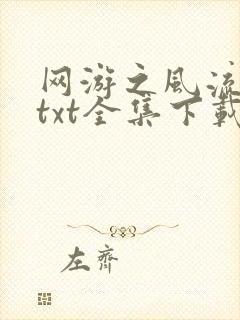 网游之风流
txt全集下载
左齐